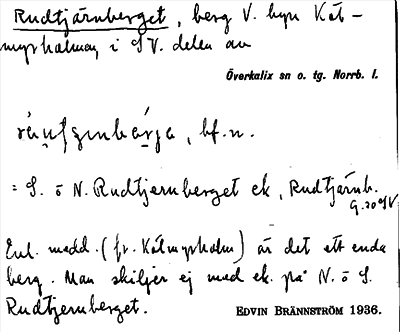 Rudtjärnberget, berg V. byn Kät-
myrholmen i SV. delen av
Överkalix sn o. tg. Norrb. l.
bf. n.
= S. o N. Rudtjernberget ek, Rudtjärnb.
G. 20 SV
Enl. medd. (fr. Kätmyrholm) är det ett enda
berg. Man skiljer ej med ek. på N. o S.
Rudtjernberget. EDVIN BRÄNNSTRÖM 1936.